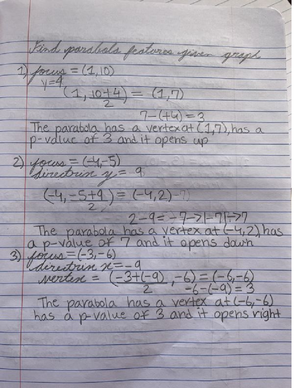 Find parabola features given graph
1) focus = (1,10)
y=4
(1, 10+4/2) = (1,7)
7-(+4)=3
The parabola has a vertex at (1,7), has a
p-value of 3 and it opens up
2) focus = (-4,-5)
directrix y= 9
(-4, -5+9/2) = (-4,2)
2-9= -7→|-7|→7
The parabola has a vertex at (-4,2), has
a p-value of 7 and it opens down
3) focus = (-3,-6)
directrix x=-9
vertex = (-3+(-9)/2, -6) = (-6,-6)
-6-(-9)=3
The parabola has a vertex at (-6,-6)
has a p-value of 3 and it opens right